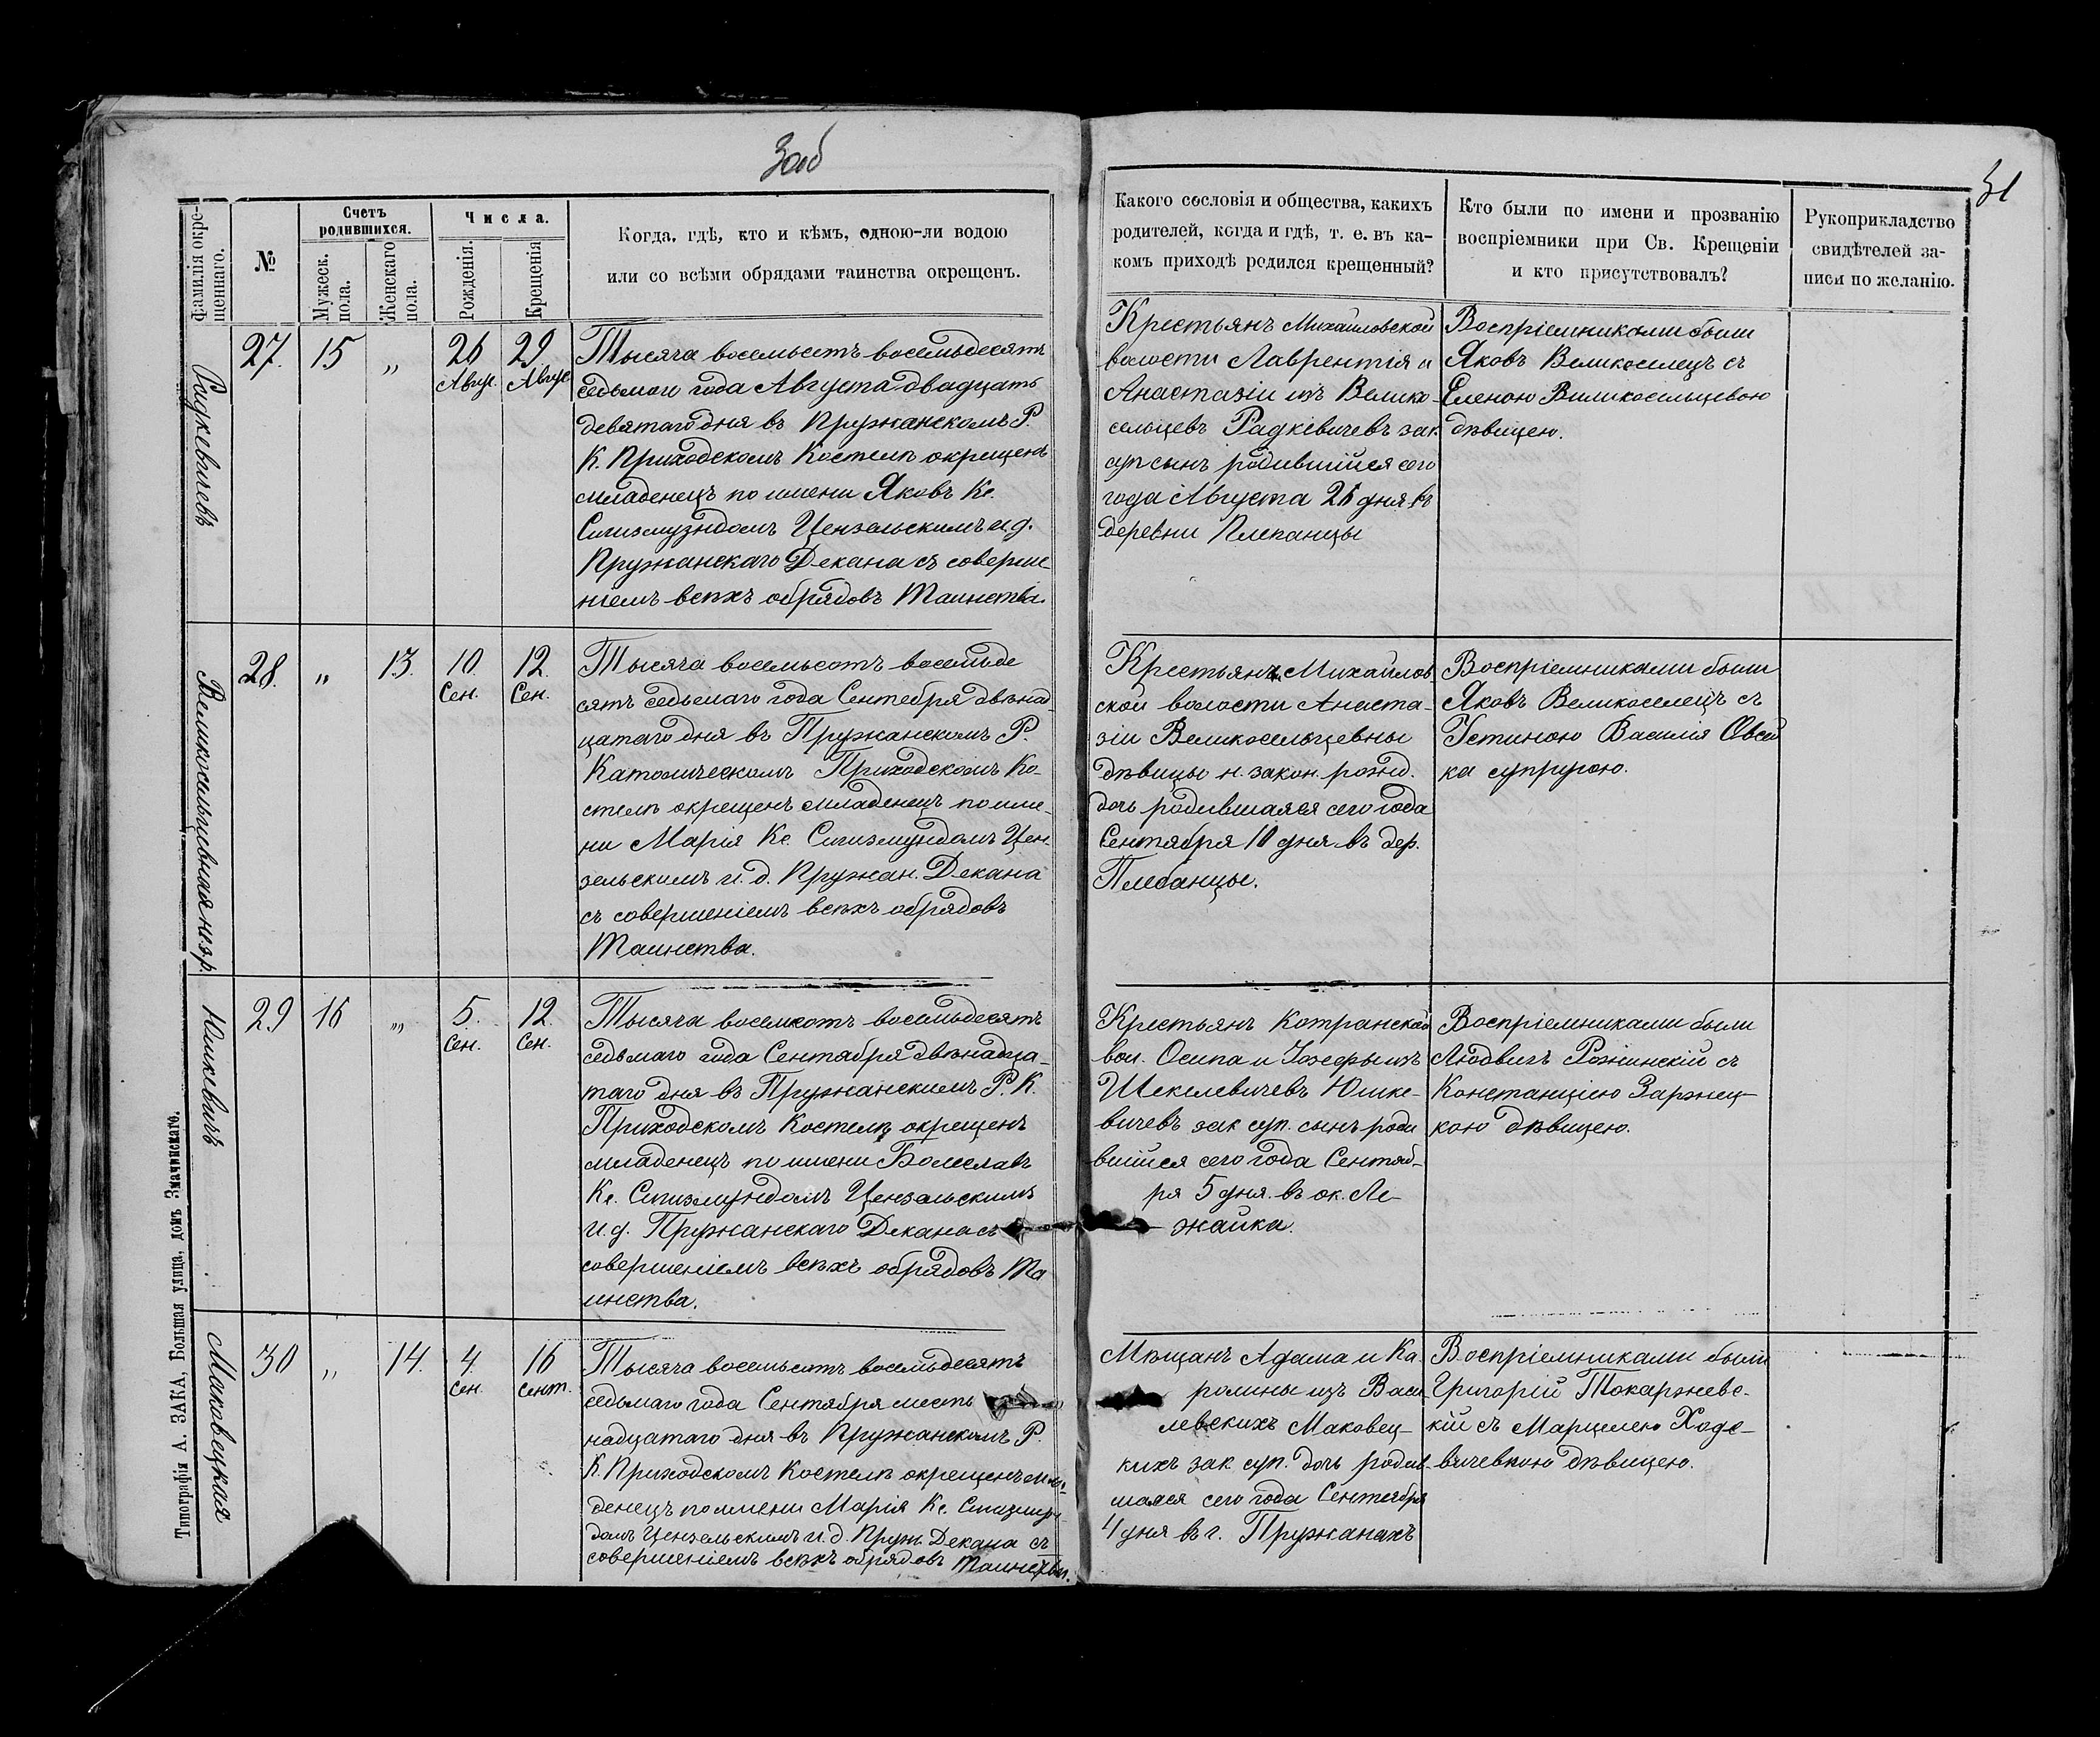 30об
31
Фамилія окре-
щеннаго.
№
Счетъ
родившихся.
Мужеск.
пола.
Женскаго
пола.
Числа.
Рожденія.
Крещенія
Когда, гдѣ, кто и кѣмъ, одною-ли водою
или со всѣми обрядами таинства окрещенъ.
Какого сословія и общества, какихъ
родителей, когда и гдѣ, т. е. въ ка-
комъ приходѣ родился крещенный?
Кто были по имени и прозванію
воспріемники при Св. Крещеніи
и кто присутствовалъ?
Рукоприкладство
свидѣтелей за-
писи по желанію.
Радкевичевъ
27.
15
„
26
Авгус.
29
Авгус
Тысяча восемьсотъ восемьдесятъ
седьмаго года Августа двадцать
девятаго дня въ Пружанскомъ Р.
К. Приходскомъ Костелѣ окрещенъ
младенецъ по имени Яковъ Кс.
Сигизмундомъ Цензельскимъ и д.
Пружанскаго Декана съ соверше
ніемъ всѣхъ обрядовъ Таинства.
Крестьянъ Михайловской
волости Лаврентія и
Анастазіи изъ Велико-
сельцевъ Радкевичевъ зак.
суп сынъ родившійся сего
года Августа 26 дня въ
деревни Плебанцы
Воспріемниками были
Яковъ Великоселецъ съ
Еленою Великосельцевою
дѣвицею.
Великосельцевная незр.
28.
„
13.
10.
Сен.
12.
Сен.
Тысяча восемьсотъ восемьде
сятъ седьмаго года Сентебря двѣнад
цатаго дня въ Пружанскомъ Р.
Католическомъ Приходскомъ Ко-
стелѣ окрещенъ младенецъ по име
ни Марія Кс. Сигизмундомъ Цен
зельскимъ и. д. Пружан. Декана
съ совершеніемъ всѣхъ обрядовъ
Таинства.
Крестьянъ Михайлов
ской волости Анаста-
зіи Великосельцевны
дѣвицы н. закон. рожд.
дочь родившаяся сего года
Сентября 10 дня въ дер.
Плебанцы.
Воспріемниками были
Яковъ Великоселецъ съ
Устиною Василія Овсей
ка супругою.
Юшкевичъ
29
16
„
5.
Сен.
12.
Сен.
Тысяча восемсотъ восемьдесятъ
седьмаго года Сентября двѣнадца-
таго дня въ Пружанскимъ Р. К.
Приходскомъ Костелѣ окрещенъ
младенецъ по имени Болеславъ
Кс. Сигизмундомъ Цензельскимъ
и. д. Пружанскаго Декана съ
совершеніемъ всѣхъ обрядовъ Та
инства.
Крестьянъ Котранской
вол. Осипа и Іозефы изъ
Шекелевичевъ Юшке-
вичевъ зак суп. сынъ роди
вшійся сего года Сентяб-
ря 5 дня. въ ок. Ле-
жайка.
Воспріемниками были
Людвигъ Рожинскій съ
Констанціею Заржец-
кою дѣвицею.
Маковецкая
30
„
14.
4.
Сен.
16
Сент.
Тысяча восемьсотъ восемьдесятъ
седьмаго года Сентября шесть
надцатаго дня въ Пружанскомъ Р.
К. Приходскомъ Костелѣ окрещенъ мла
денецъ по имени Марія Кс. Сигизмун
домъ Цензельскимъ и. д. Пруж. Декана съ
совершеніемъ всѣхъ обрядовъ Таинства.
Мѣщанъ Адама и Ка
ролины изъ Васи
левскихъ Маковец-
кихъ зак суп. дочь родив-
шаяся сего года Сентября
4 дня въ г. Пружанахъ
Воспріемниками были
Григорій Токаржевс-
кій съ Марцелею Ходе-
вичевною дѣвицею.
Типографія А. ЗАКА, Большая улица, домъ Значинскаго.